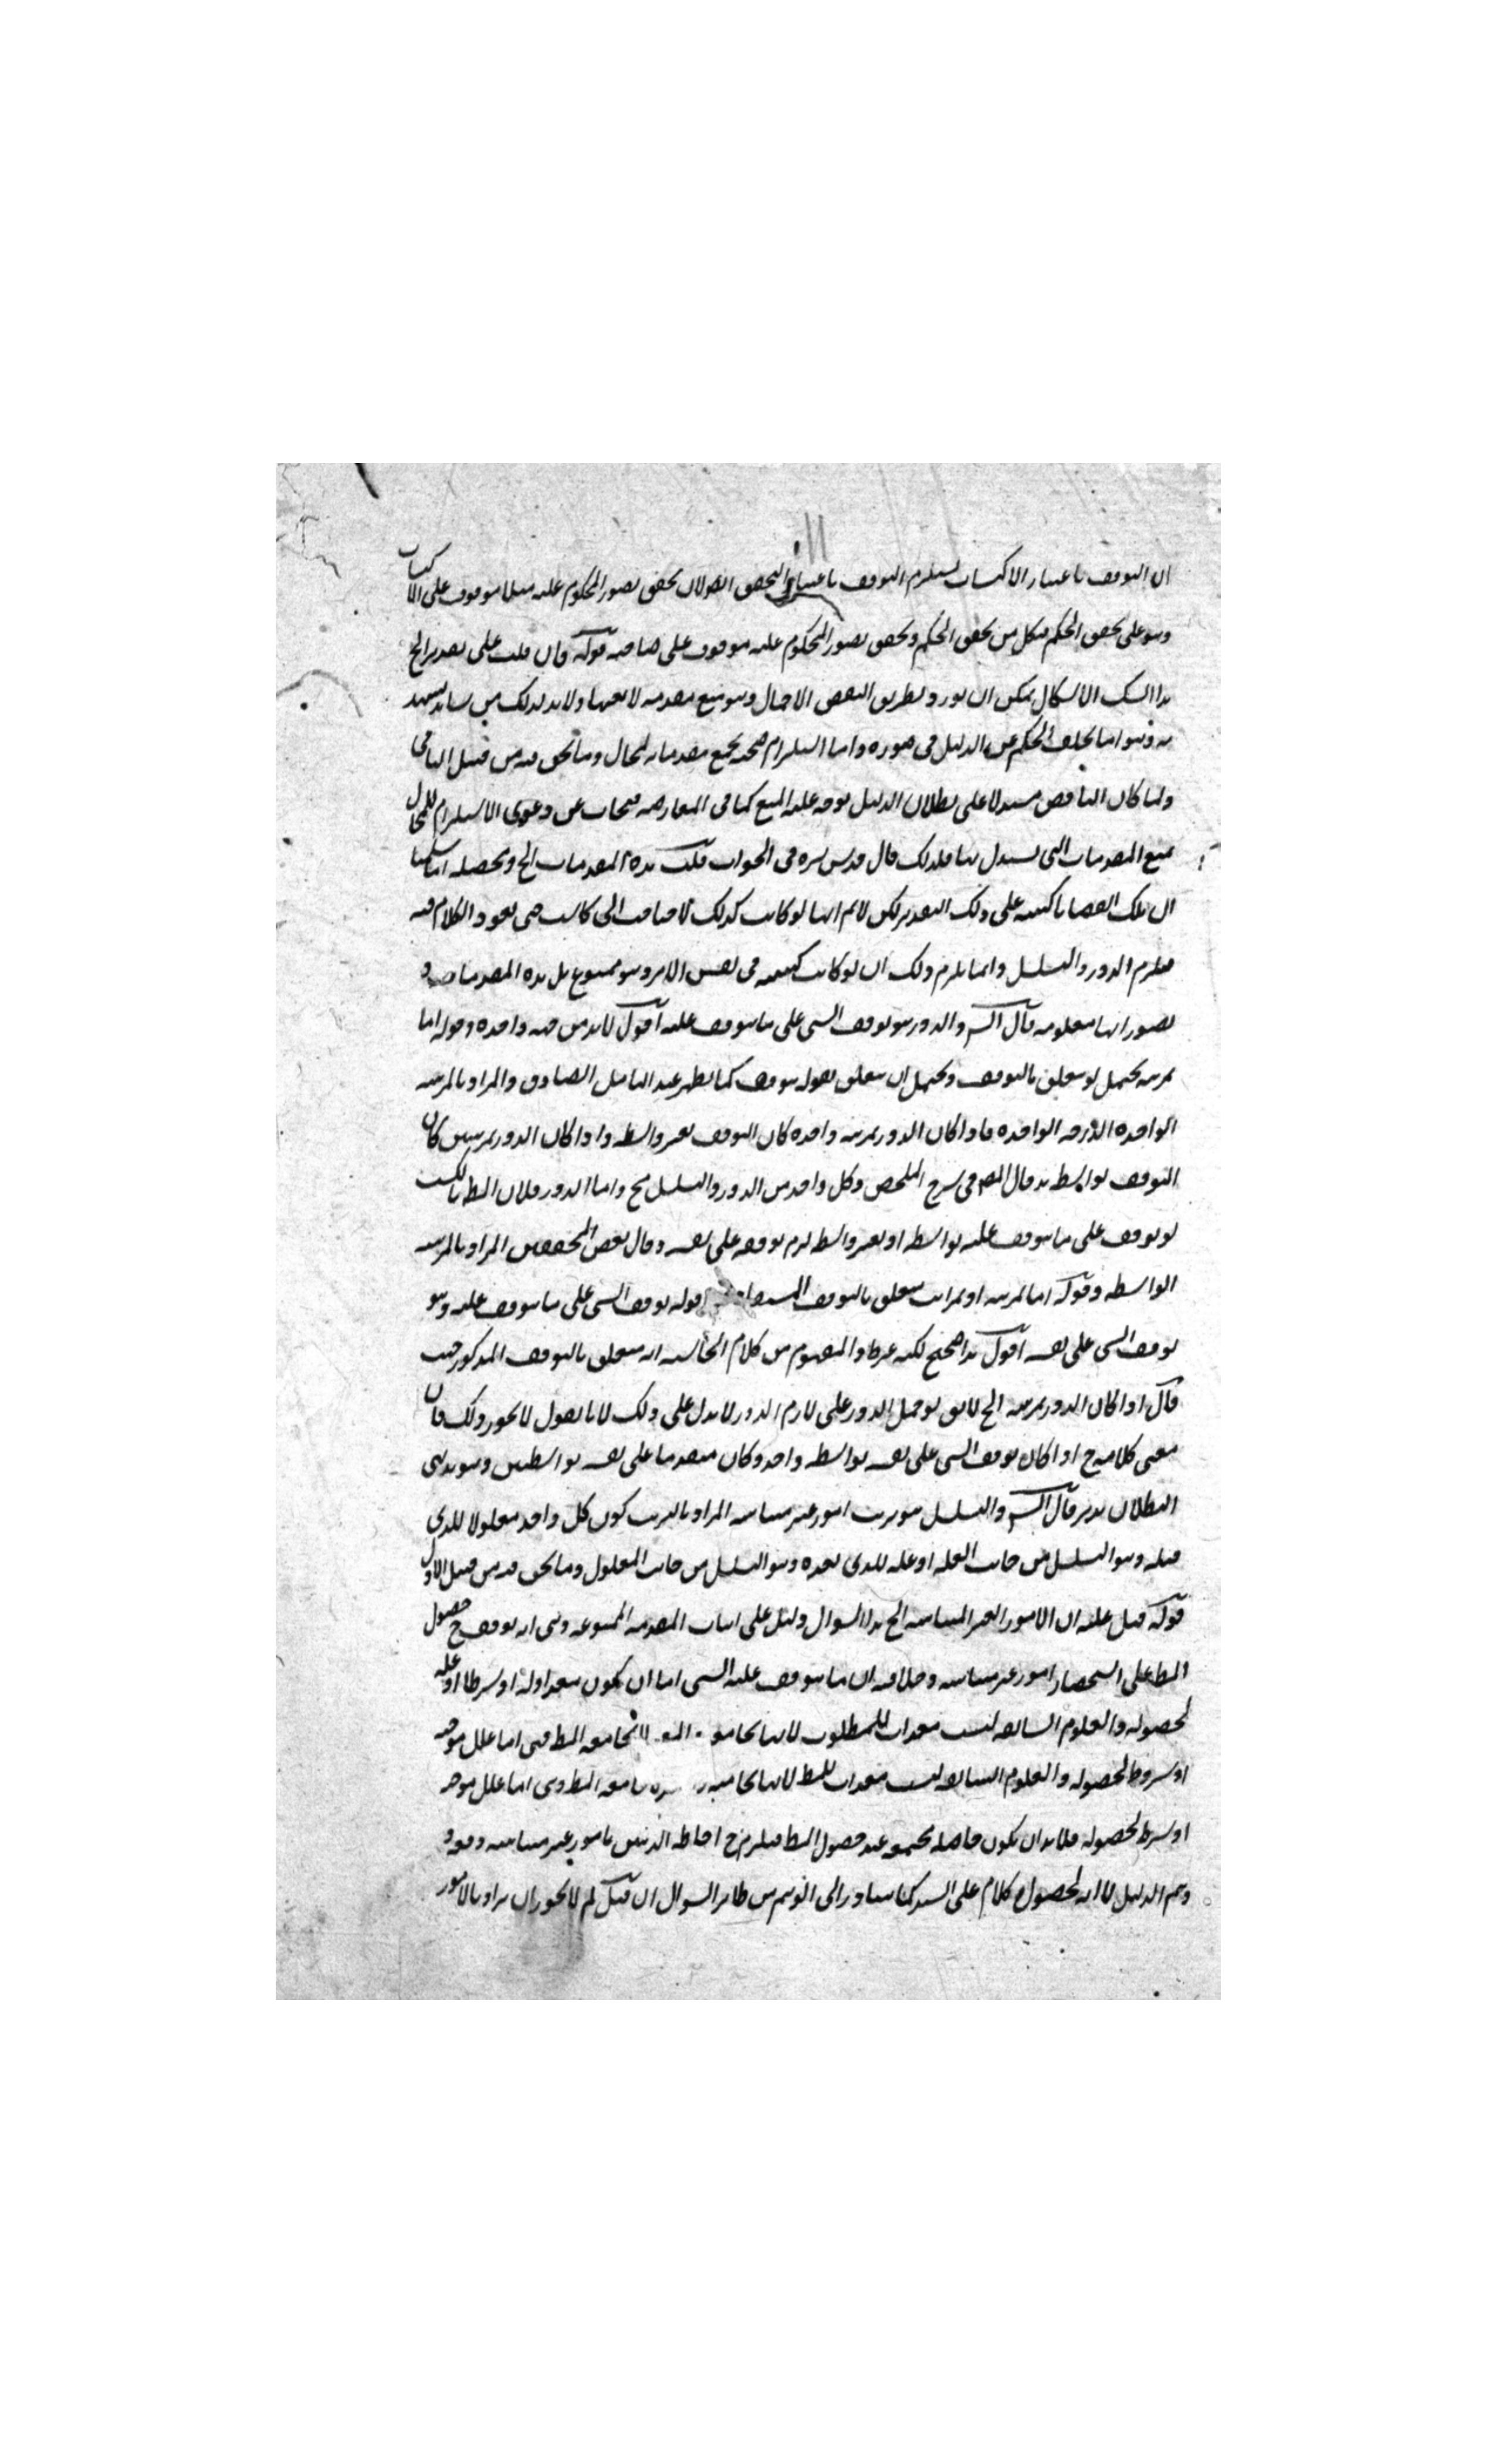 ان التوقف باعتبار الاكتساب يستلزم التوقف باعتبار التحقق ايضا لان تحقق تصور المحكوم عليه مثلا موقوف على الاكتساب
وهو على تحقق الحكم فكل من تحقق الحكم وتحقق تصور المحكوم عليه موقوف على صاحبه قوله فان قلت على تقدير الخ
هذا الشك الاشكال يمكن ان يورد بطريق النقض الاجمالي وهو منع مقدمة لا بعينها ولا بد لذلك من شاهد يشهد
به وهو اما تخلف الحكم عن الدليل في صورة واما استلزام صحة جميع مقدماته لمحال وما نحن فيه من قبيل الثاني
ولما كان الناقض مستدلا على بطلان الدليل توجه عليه المنع كما في المعارضة فيجاب عن دعوى الاستلزام للمحال
بمنع المقدمات التي يستدل بها فلذلك قال قدس سره في الجواب قلت هذه المقدمات الخ ومحصله انا سلمنا
ان تلك القضايا كسبية على ذلك التقدير لكن لا نم انها لو كانت كذلك لاحتاجت الى كاسب حتى يعود الكلام فيه
فيلزم الدور والتسلسل وانما يلزم ذلك ان لو كانت كسبية في نفس الامر وهو ممنوع بل هذه المقدمات و
تصوراتها معلومة قال الش والدور هو توقف الشي على ما يتوقف عليه اقول لا بد من جهة واحدة وقوله اما
بمرتبة يحتمل لو يتعلق بالتوقف ويحتمل ان يتعلق بقوله يتوقف كما يظهر عند التامل الصادق والمراد بالمرتبة
الواحدة الدرجة الواحدة فاذا كان الدور بمرتبة واحدة كان التوقف بغير واسطة واذا كان الدور بمرتبتين كان
التوقف بواسطة هذ قال المص في شرح الملخص وكل واحد من الدور والتسلسل مح واما الدور فلان الشي بالكسب
لو توقف على ما يتوقف عليه بواسطة او بغير واسطة لزم توقفه على نفسه وقال بعض المحققين المراد بالمرتبة
الواسطة وقوله اما بمرتبة او بمراتب يتعلق بالتوقف قوله توقف الشي على ما يتوقف عليه وهو
توقف الشي على نفسه اقول هذا صحيح لكنه غير ظ والمفهوم من كلام الحاشية انه يتعلق بالتوقف المذكور حيث
قال اذا كان الدور بمرتبة الخ لا يق لو حمل الدور على لازم الدور لا يدل على ذلك لانا نقول لا يجوز ذلك فان
معنى كلامه ح اذا كان توقف الشي على نفسه بواسطة واحد وكان متقدما على نفسه بواسطتين وهو بديهي
البطلان تدبر قال الش والتسلسل هو ترتب امور غير متناهية المراد بالترتب كون كل واحد معلولا للذي
قبله وهو التسلسل من جانب العلة او علة للذي بعده وهو التسلسل من جانب المعلول وما نحن فيه من قبيل الاول
قوله قيل عليه ان الامور الغير المتناهية الخ هذا السوال دليل على اثبات المقدمة الممنوعة وهي انه يتوقف ح حصول
المط على استحضار امور غير متناهية وخلافه ان ما يتوقف عليه الشي اما ان يكون معدا له او شرطا او علة
لحصوله والعلوم السابقة ليست معدات للمطلوب لانها تجامع لا تجامعه المط فهي اما علل موجبة
او شروط لحصوله والعلوم السابقة ليست معدات للمط لانها تجامعه المط وهي اما علل موجبة
او شرط لحصوله فلا بد ان يكون حاصلة مجتمعة عند حصول المط فيلزم ح احاطة الذهن بامور غير متناهية دفعة و
وتم الدليل لا انه كلام على السند كما يتبادر الى الوهم من ظاهر السوال ان قيل لم لا يجوز ان يراد بالامور